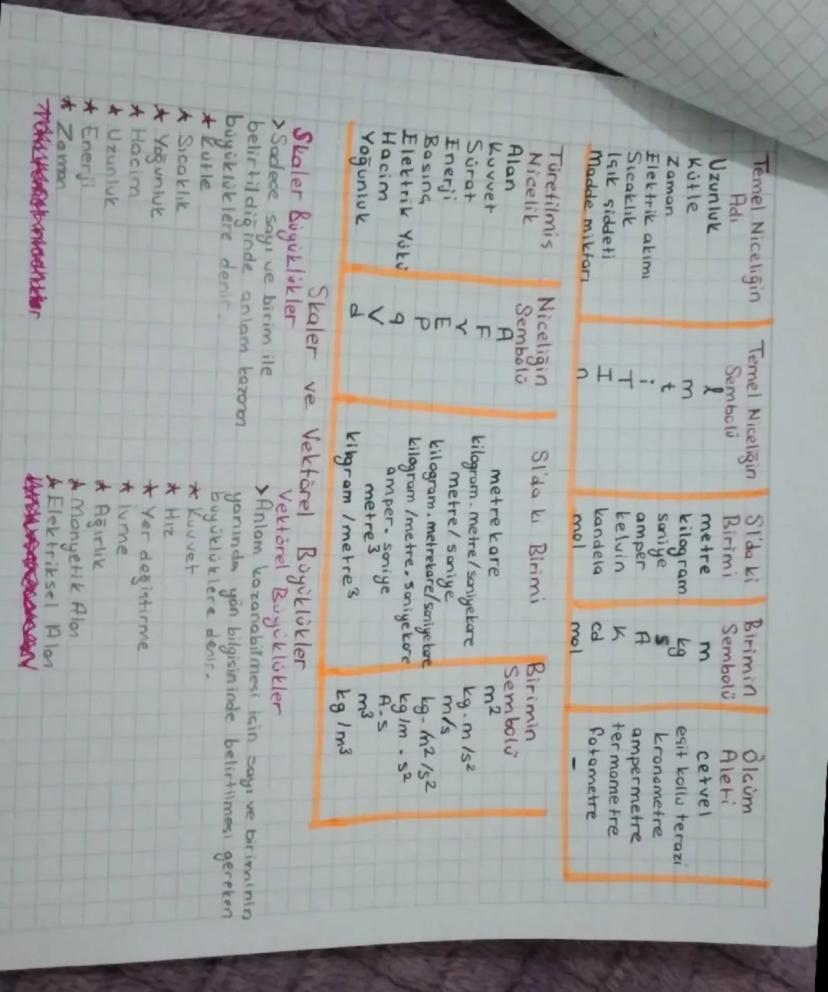 Temel Niceliğin Adı | Temel Niceliğin Sembolü | SI'da ki Birimi | Birimin Sembolü | Ölçüm Aleti
Uzunluk | l | metre | m | cetvel
Kütle | m | kilogram | kg | eşit kollu terazi
Zaman | t | saniye | s | kronometre
Elektrik akımı | i | amper | A | ampermetre
Sıcaklık | T | kelvin | K | termometre
Işık şiddeti | I | kandela | cd | fotometre
Madde miktarı | n | mol | mol | –
Türetilmiş Nicelik | Niceliğin Sembolü | SI'da ki Birimi | Birimin Sembolü
Alan | A | metrekare | m²
Kuvvet | F | kilogram.metre/saniyekare | kg.m/s²
Sürat | v | metre/saniye | m/s
Enerji | E | kilogram.metrekare/saniyekare | kg.m²/s²
Basınç | P | kilogram/metre.saniyekare | kg/m.s²
Elektrik Yükü | q | amper.saniye | A.s
Hacim | V | metre³ | m³
Yoğunluk | d | kilogram/metre³ | kg/m³
Skaler ve Vektörel Büyüklükler
Skaler Büyüklükler
>Sadece sayı ve birim ile
belirtildiğinde anlam kazanan
büyüklüklere denir.
★ Kütle
★ Sıcaklık
★ Yoğunluk
★ Hacim
★ Uzunluk
★ Enerji
★ Zaman
Vektörel Büyüklükler
>Anlam kazanabilmesi için sayı ve biriminin
yanında yön bilgisininde belirtilmesi gereken
büyüklüklere denir.
★ Kuvvet
★ Hız
★ Yer değiştirme
★ İvme
★ Ağırlık
★ Manyetik Alan
★ Elektriksel Alan